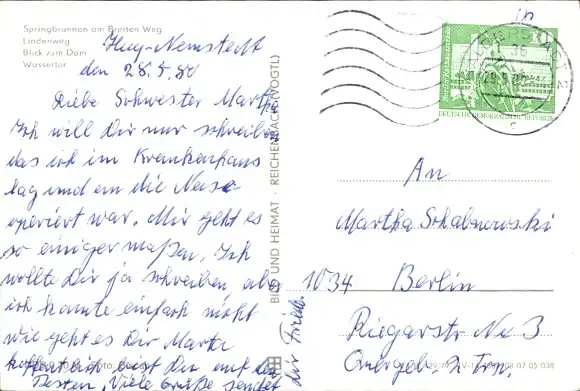 Springbrunnen am Breiten Weg
Lindenweg
Blick zum Dom
Wassertor
Huy-Neinstedt
den 28.5.80
Liebe Schwester Martha
Ich will Dir nur schreiben
das ich im Krankenhaus
lag und an die Nase
operiert war. Mir geht es
so einiger maßen. Ich
wollte Dir ja schreiben aber
ich konnte einfach nicht
wie geht es Dir Marta
hoffentlich bist Du auf dem
Besten, Viele Grüße sendet
dir Frieda
BILD UND HEIMAT · REICHENBACH (VOGTL)
DEUTSCHE DEMOKRATISCHE REPUBLIK
An
Martha Schabnowski
1034 Berlin
Riegarstr No 3
Quergeb. 2 Trp.
07 05 038